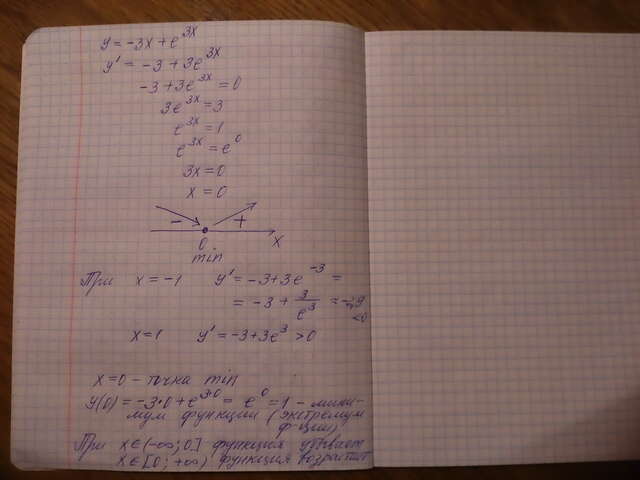 y = -3x + e^{3x}
y' = -3 + 3e^{3x}
-3 + 3e^{3x} = 0
3e^{3x} = 3
e^{3x} = 1
e^{3x} = e^0
3x = 0
x = 0
- +
0 x
min
При x = -1 y' = -3 + 3e^{-3} =
= -3 + 3/e^3 = <0
x = 1 y' = -3 + 3e^3 > 0
x = 0 - точка min
y(0) = -3·0 + e^{3·0} = e^0 = 1 - мини-
мум функции (экстремум
ф-ции)
При x ∈ (-∞; 0] функция убывает
x ∈ [0; +∞) функция возрастает